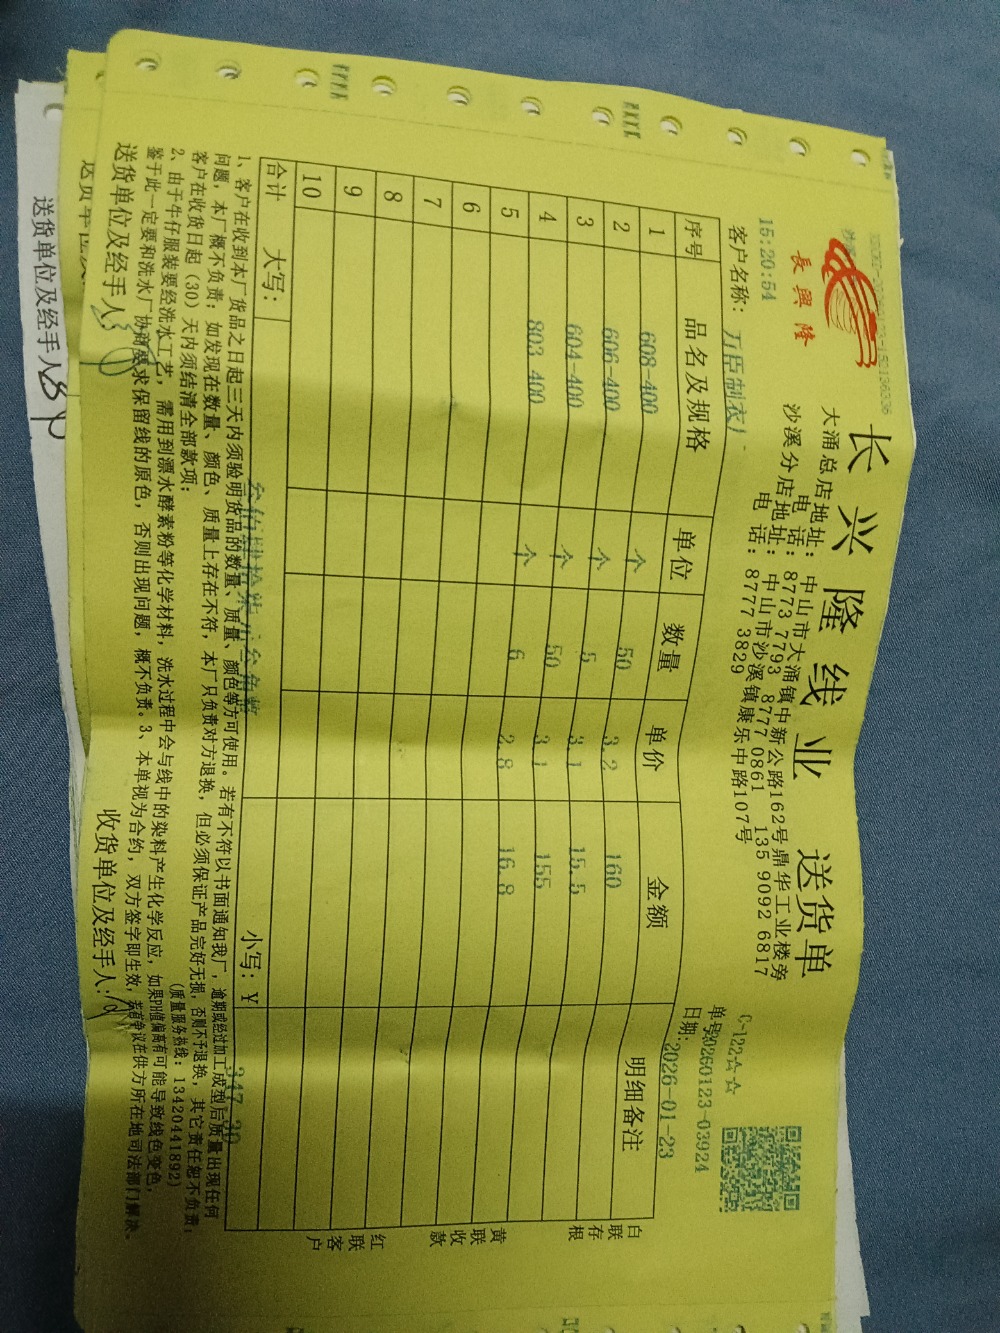 長興隆
长兴隆线业 送货单
大涌总店地址: 中山市大涌镇中新公路162号鼎华工业楼旁
电话: 8773 7793 8777 0861 135 9092 6817
沙溪分店地址: 中山市沙溪镇康乐中路107号
电话: 8777 3829
C-122☆☆
单号20260123-03924
日期: 2026-01-23
15:20:54
客户名称: 万臣制衣厂
序号 品名及规格 单位 数量 单价 金额 明细备注
1 608-400 个 50 3.2 160
2 606-400 个 5 3.1 15.5
3 604-400 个 50 3.1 155
4 803-400 个 6 2.8 16.8
5
6
7
8
9
10
合计 大写: 叁佰肆拾柒元叁角整 小写: ¥ 347.30
白联存根
黄联收款
红联客户
1、客户在收到本厂货品之日起三天内须验明货品的数量、质量、颜色等方可使用。若有不符以书面通知我厂,逾期或经过加工成型后质量出现任何
问题,本厂概不负责;如发现在数量、颜色、质量上存在不符,本厂只负责对方退换,但必须保证产品完好无损,否则不予退换,其它责任恕不负责;
客户在收货日起(30)天内须结清全部款项;
(质量服务热线: 13420441892)
2、由于牛仔服装要经洗水工艺,需用到漂水酵素粉等化学材料,洗水过程中会与线中的染料产生化学反应,如果PH值偏高有可能导致线色变色,
鉴于此一定要和洗水厂协商要求保留线的原色,否则出现问题,概不负责。3、本单视为合约,双方签字即生效,若有争议在供方所在地司法部门解决、
送货单位及经手人: 收货单位及经手人:
送货单位及经手人